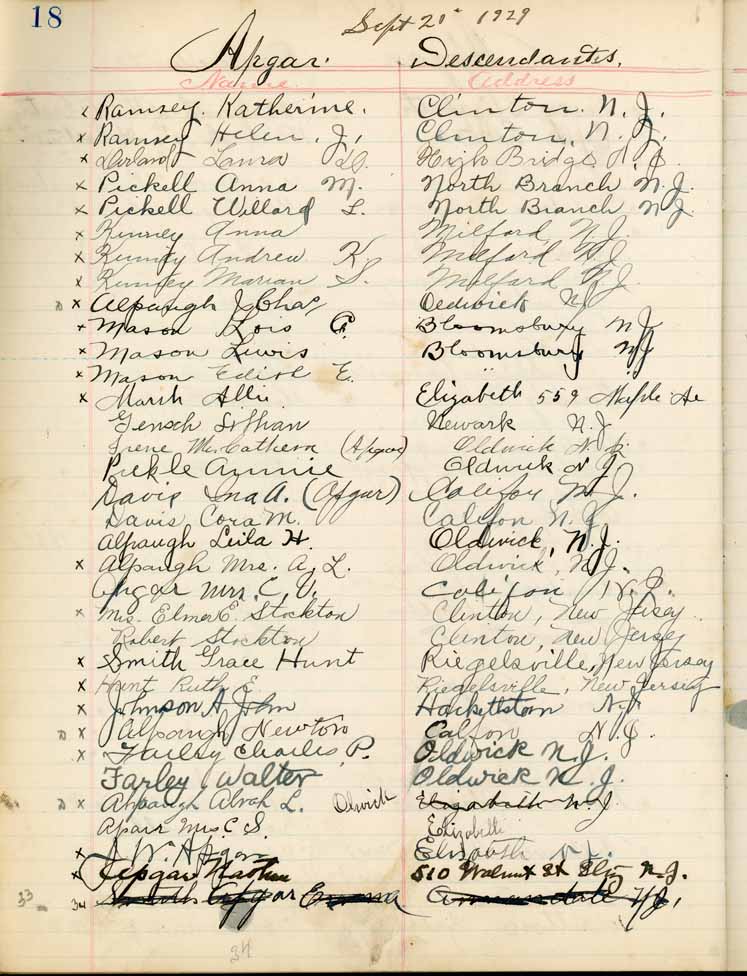 18
Sept 20" 1929
Apgar. Descendants.
Name Address
x Ramsey. Katherine. Clinton. N. J.
x Ramsey Helen. J. Clinton, N. J.
x Laura High Bridge N. J.
x Pickell Anna M. North Branch N. J.
x Pickell Willard L. North Branch N J
x Kinney Anna Milford, N. J.
x Kinney Andrew K Milford N. J
x Kinney Marian S. Milford N. J.
D x Alpaugh J Chas Oldwick N J
x Mason Lois C. Bloomsbury N J
x Mason Lewis Bloomsbury N J
x Mason Edith E. " "
x Marsh Allie Elizabeth 559 Maple Ave
Gensch Lillian Newark N. J
Irene McCathern (Apgar) Oldwick N. J.
Pickle Annie Oldwick N J
Davis Ina A. (Apgar) Califon N. J.
Davis Cora M. Califon N. J
Alpaugh Leila H. Oldwick, N. J.
x Alpaugh Mrs. A. L. Oldwick, N. J.
Apgar Mrs. C. V. Califon N. J.
x Mrs. Elmer E. Stockton Clinton, New Jersey
Robert Stockton Clinton, New Jersey
x Smith Grace Hunt Riegelsville, New Jersey
x Hunt Ruth E. Riegelsville, New Jersey
x Johnson A, John Hackettstown N. J.
D x Alpaugh Newton Califon N. J.
x Farley Charles P. Oldwick N. J.
Farley Walter Oldwick N. J.
D x Alpaugh Abrah L. Olwick Elizabeth N. J
Apgar Mrs C S. Elizabeth
x J. W. Apgar Elizabeth N. J.
x Apgar Nathan 510 Walnut St Eliz N. J.
33 34 Smith Apgar Emma Annandale N. J.
34